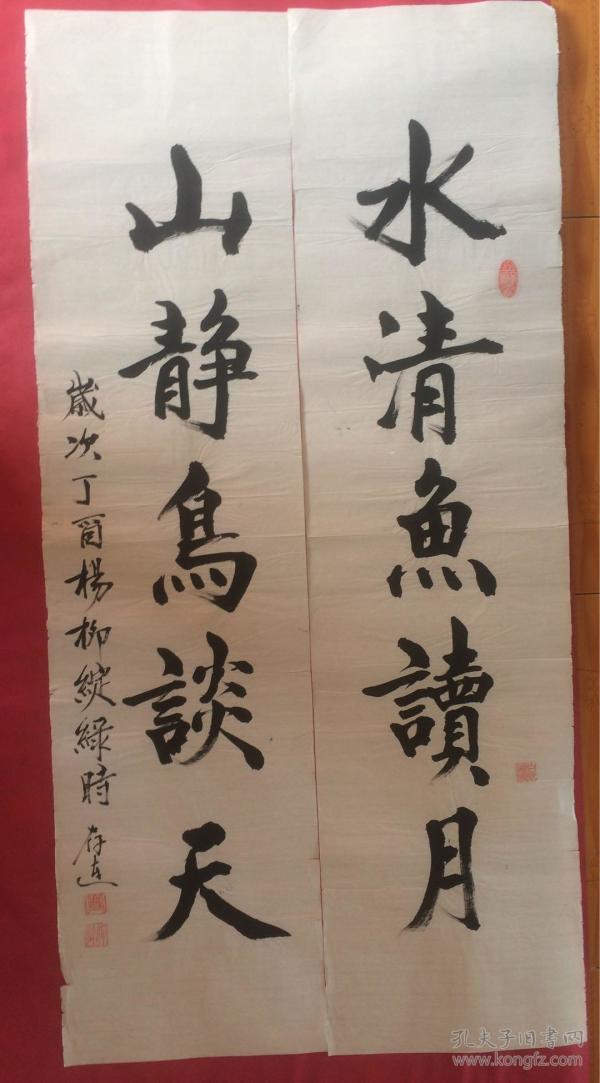 水清魚讀月
山静鳥談天
歲次丁酉楊柳綻綠時
孔夫子旧书网
www.kongfz.com